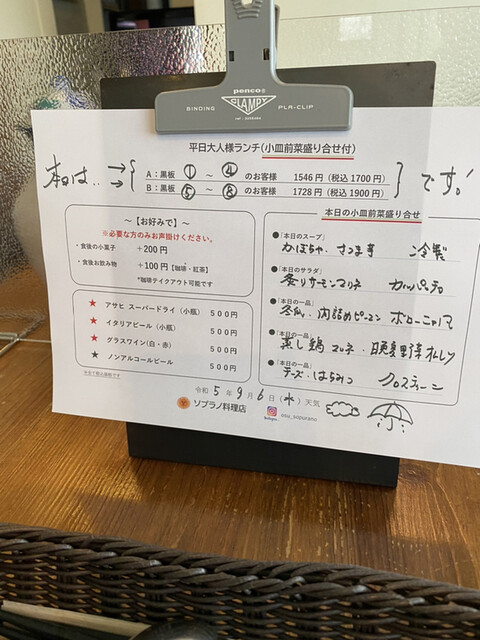 penco®
BINDING CLAMPY PLA-CLIP
平日大人様ランチ(小皿前菜盛り合せ付)
本日は..→→{
A:黒板 ① ～ ④ のお客様 1546円(税込1700円)
B:黒板 ⑤ ～ ⑧ のお客様 1728円(税込1900円)
}です!
～【お好みで】～
※必要な方のみお声掛けください。
・食後の小菓子 +200円
・食後お飲み物 +100円【珈琲・紅茶】
*珈琲テイクアウト可能です
★ アサヒ スーパードライ(小瓶) 500円
★ イタリアビール(小瓶) 500円
★ グラスワイン(白・赤) 500円
★ ノンアルコールビール 500円
本日の小皿前菜盛り合せ
●「本日のスープ」
かぼちゃ・さつま芋 冷製
●「本日のサラダ」
炙りサーモンマリネ カルパッチョ
●「本日の一品」
冬瓜・肉詰めピーマン ボローニャ風
●「本日の一品」
蒸し鶏 マリネ・
●「本日の一品」
チーズ・はちみつ クロスティーニ
令和 5年 9月 6日(水)天気
ソプラノ料理店
osu_sopurano